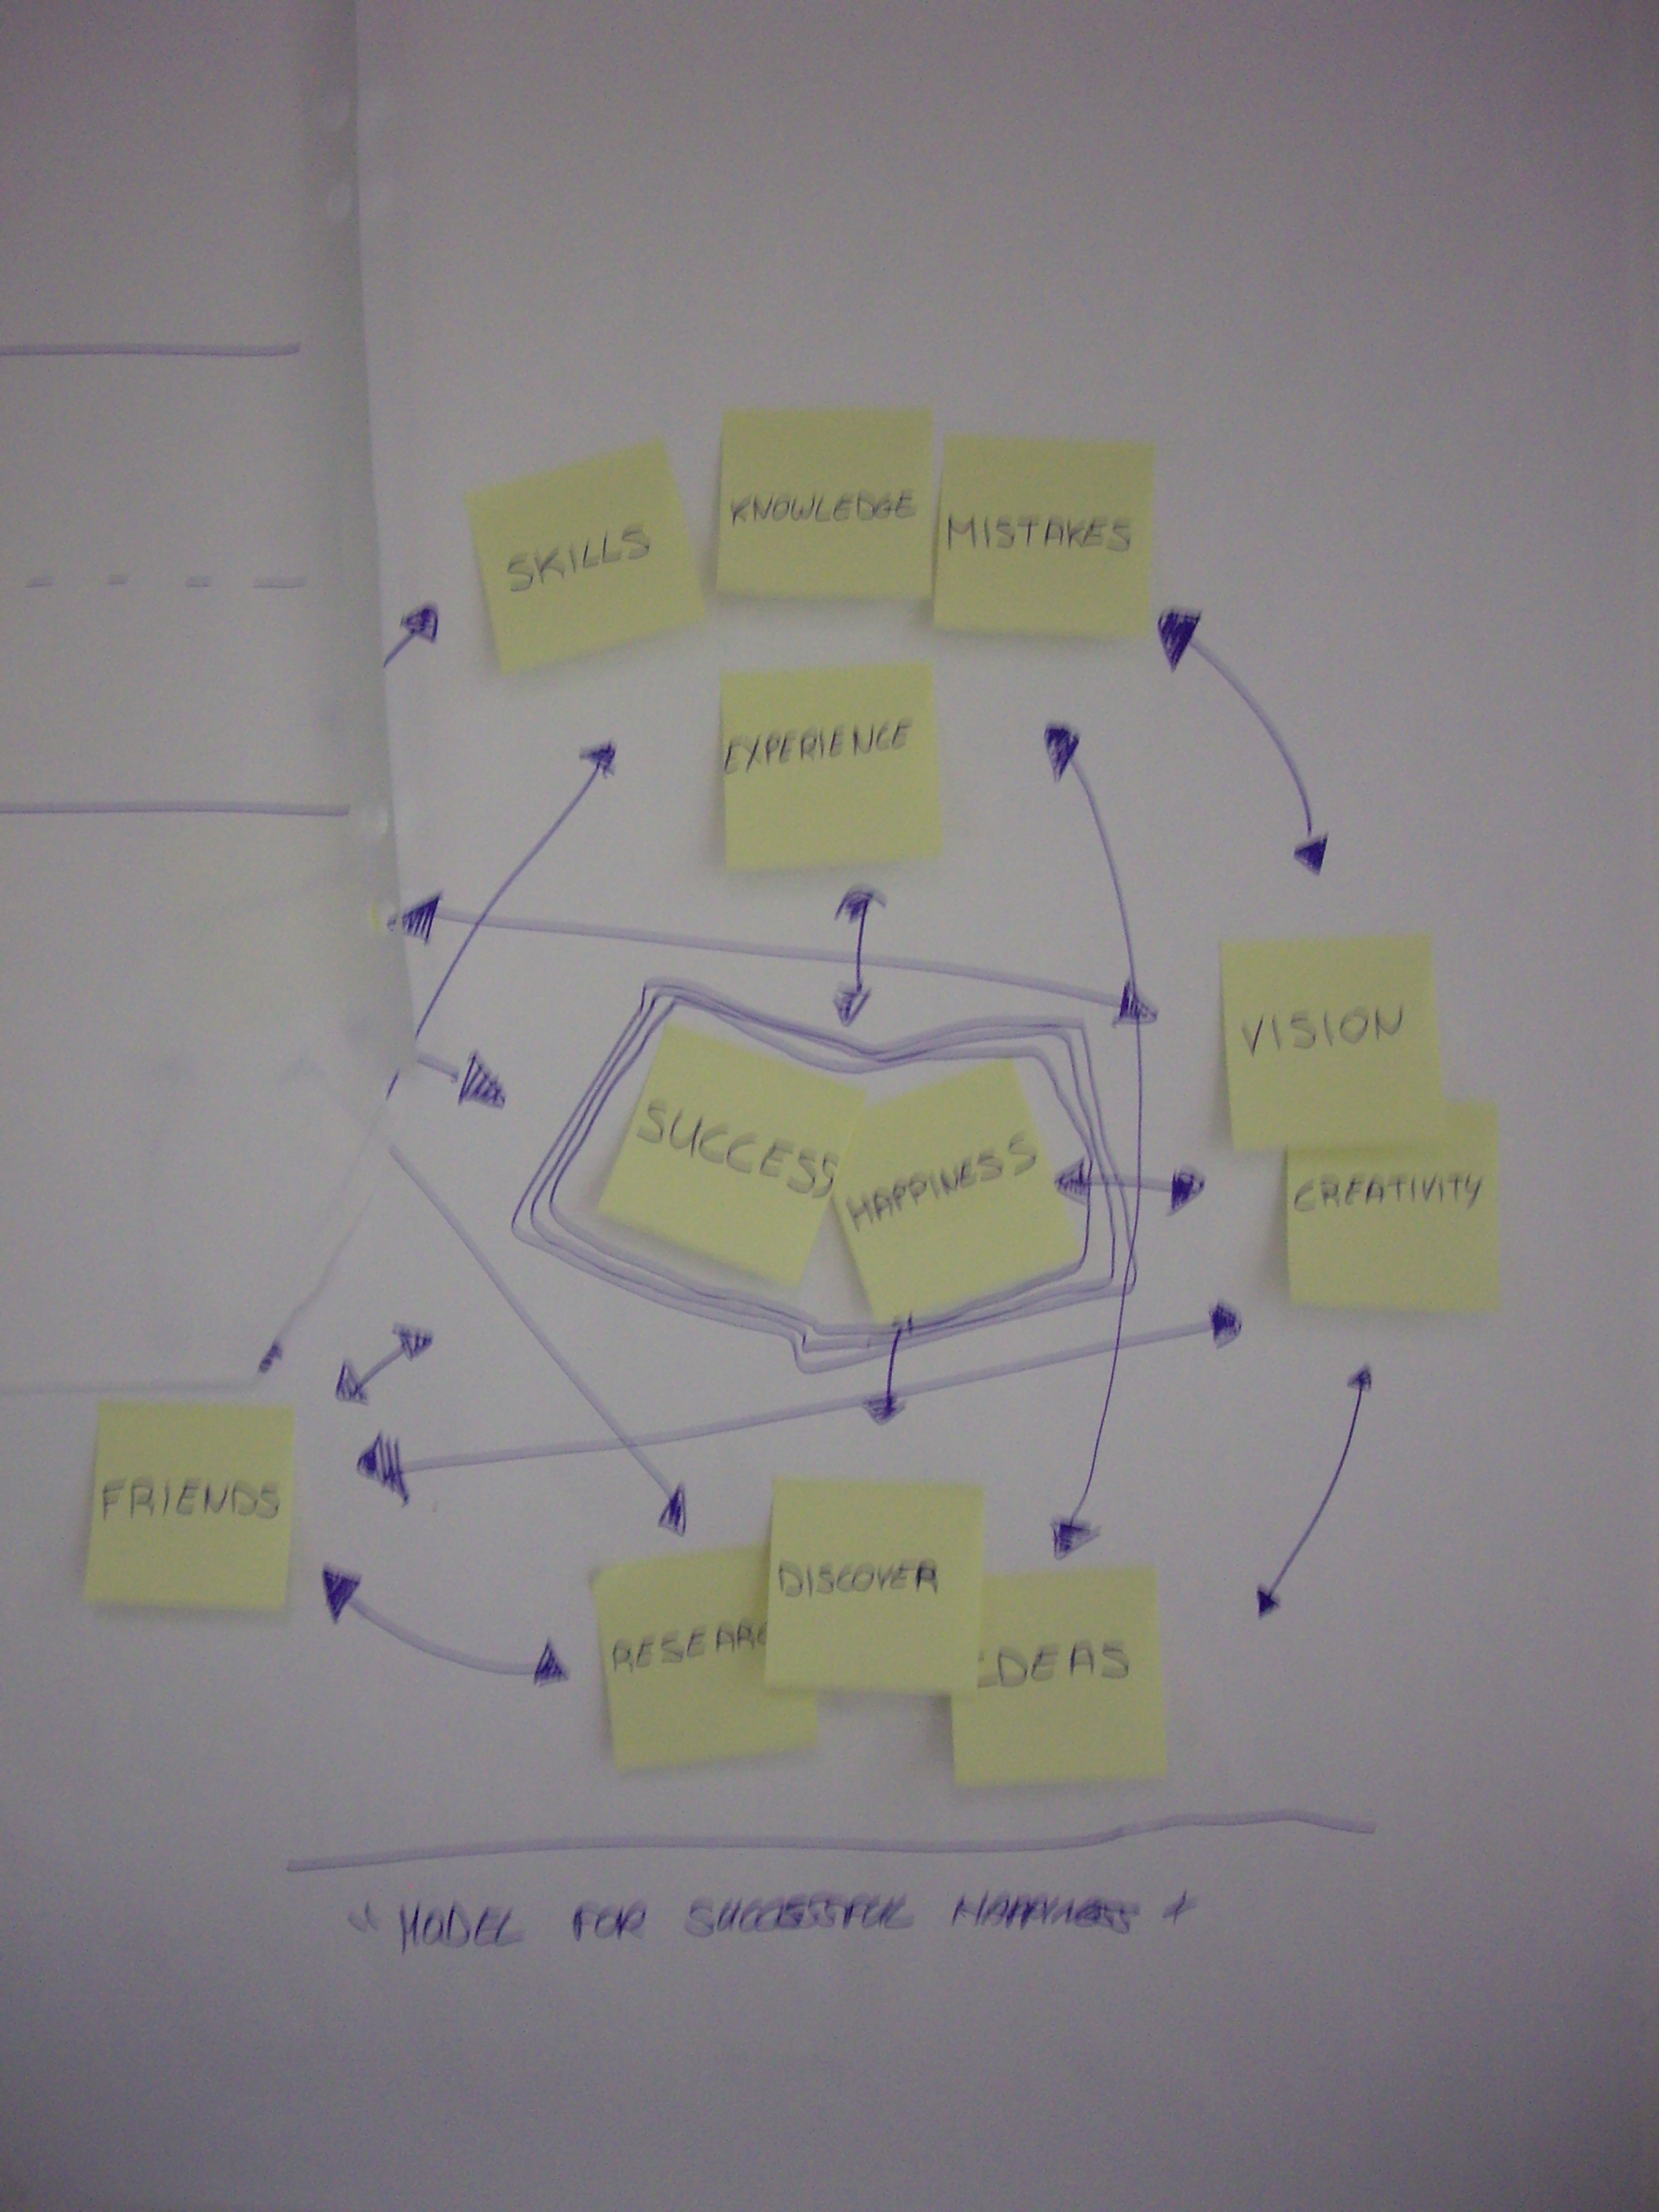 SKILLS
KNOWLEDGE
MISTAKES
EXPERIENCE
VISION
SUCCESS
HAPPINESS
CREATIVITY
FRIENDS
DISCOVER
RESEARC
IDEAS
" MODEL FOR SUCCESSFUL HAPPINESS "